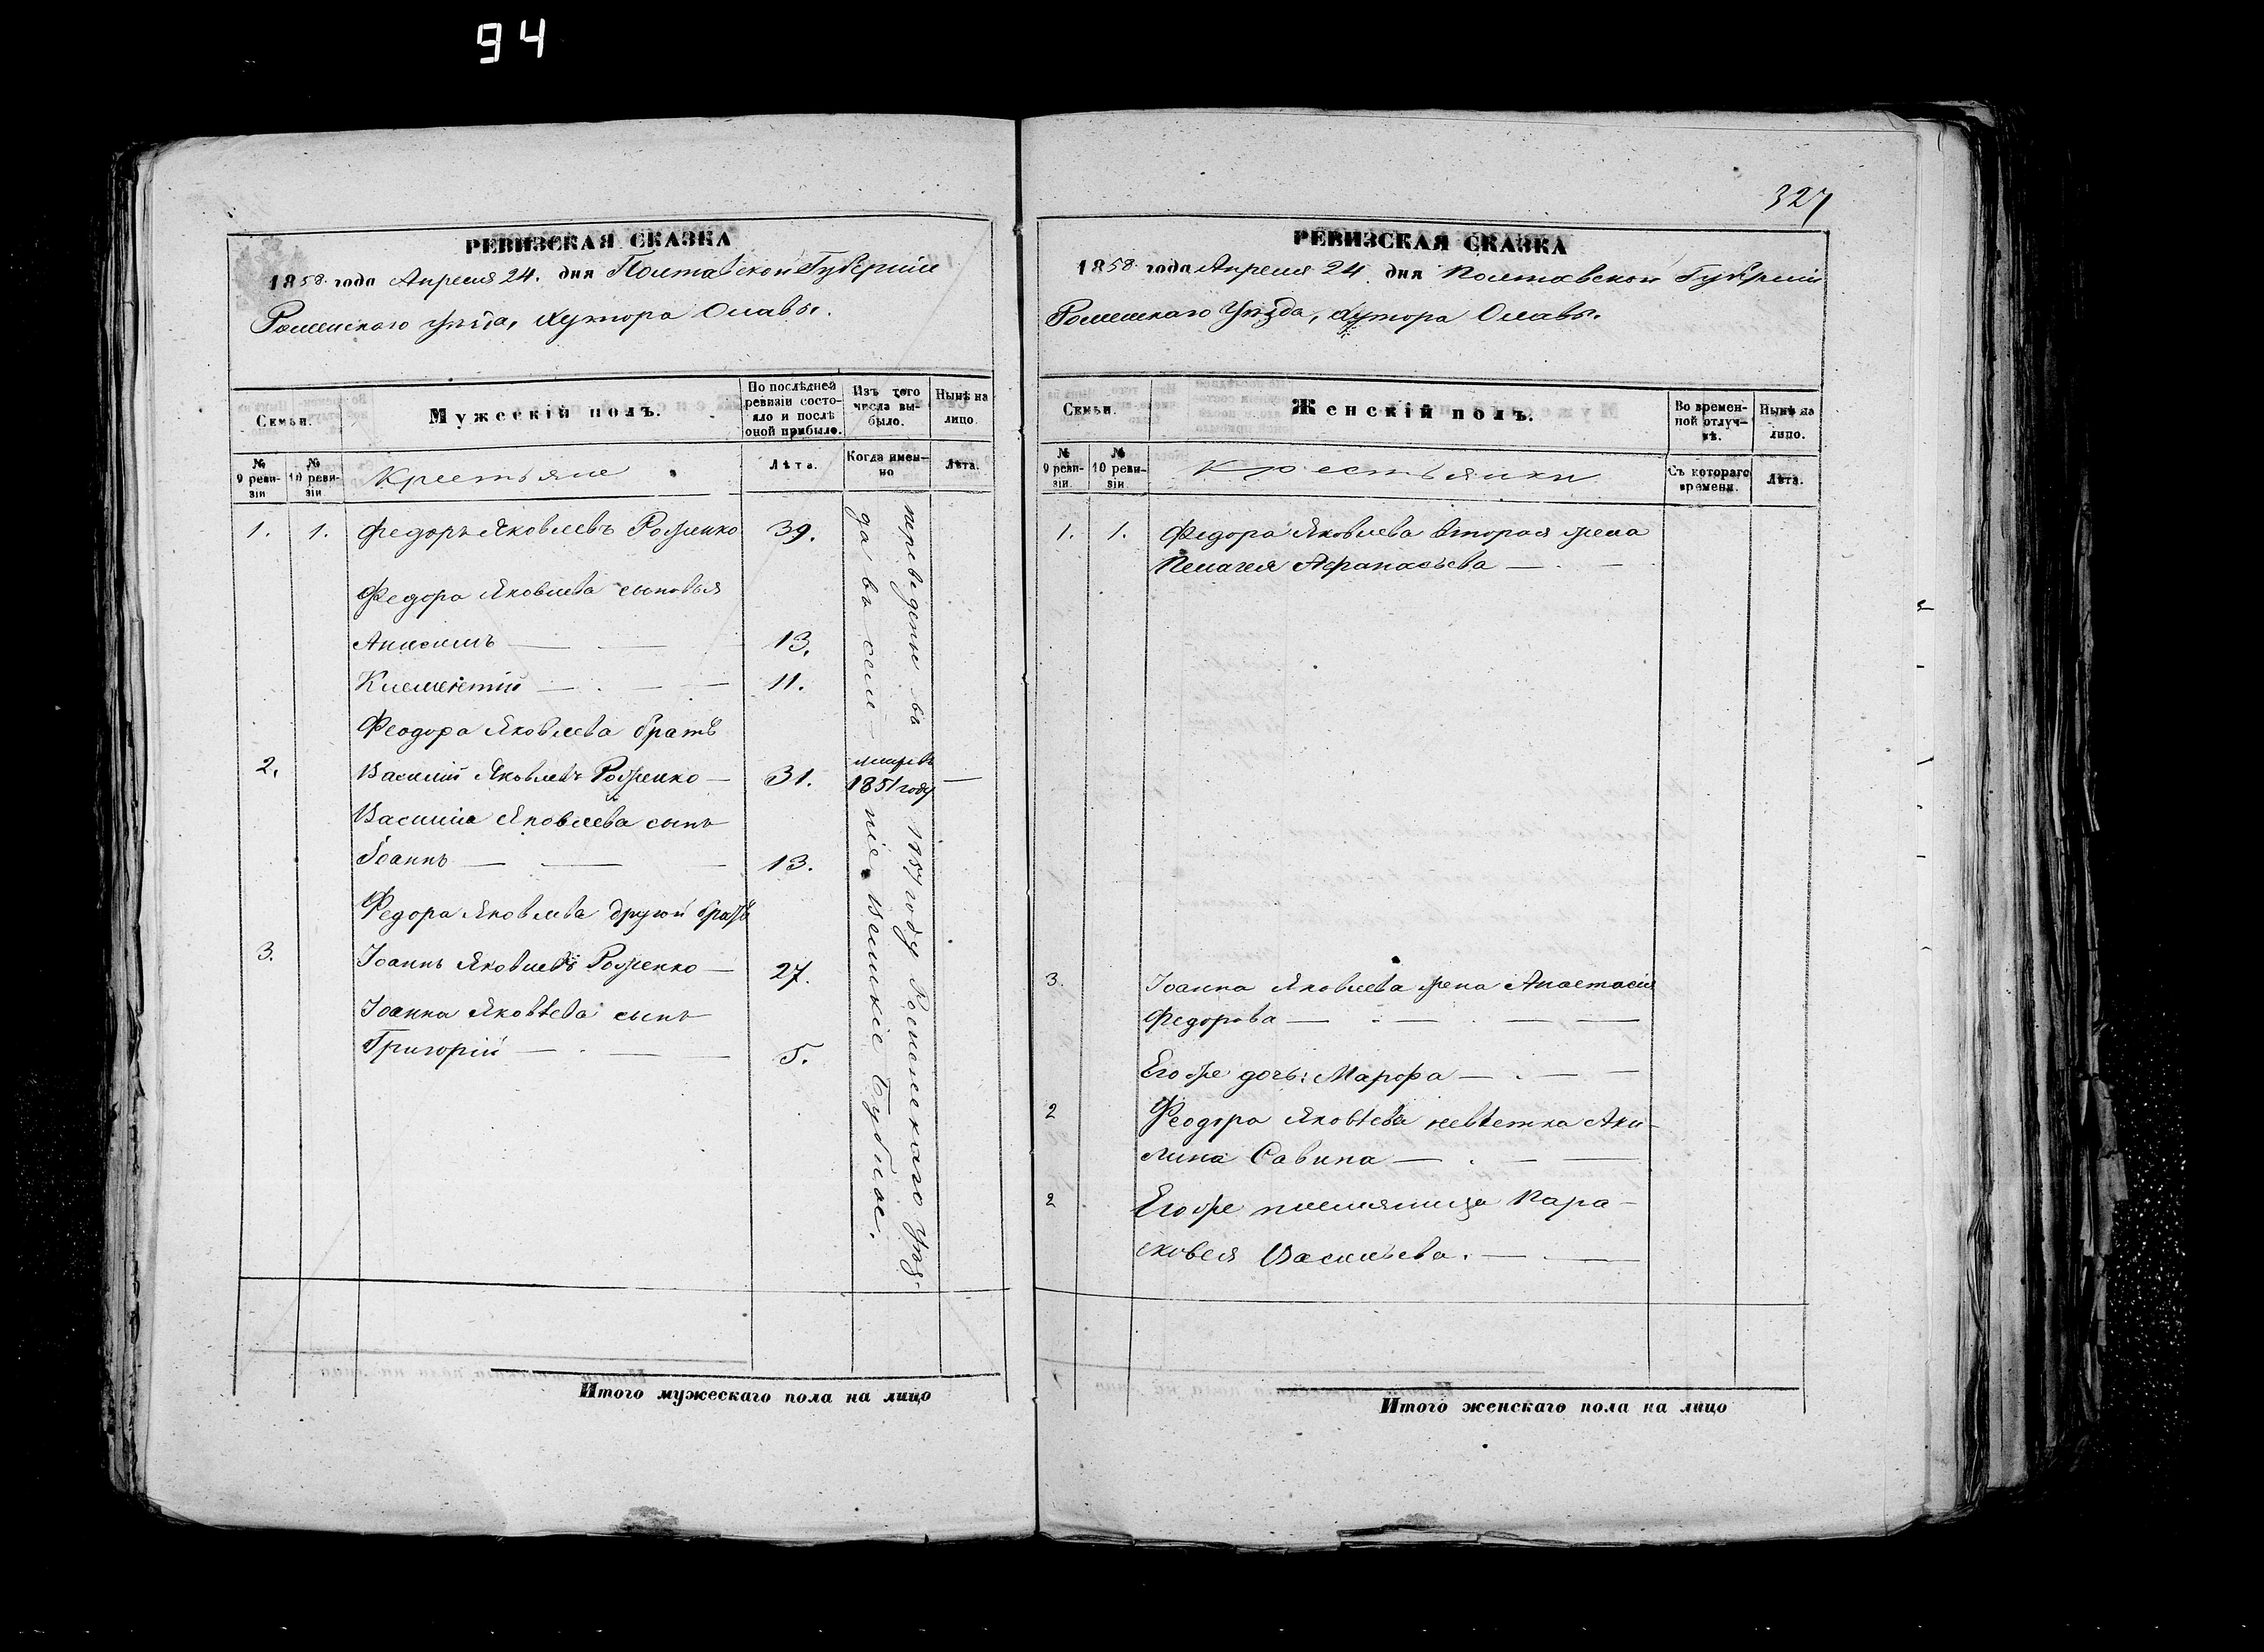 94
327
РЕВИЗСКАЯ СКАЗКА
1858 года Апреля 24. дня Полтавской Губерніи
Роменскаго уѣзда, хутора Олавы.
Семьи.
Мужескій полъ.
По послѣдней ревизіи состояло и послѣ оной прибыло.
Изъ того числа выбыло.
Нынѣ на лицо.
№ 9 ревизіи
№ 10 ревизіи
Крестьяне
Лѣта.
Когда именно
Лѣта.
1. 1. Федоръ Яковлевъ 39.
Федора Яковлева сыновья
Анисимъ — . — 13.
Климентій — . — — 11.
Феодора Яковлева братъ
2. Василій Яковлевъ — 31. умеръ въ 1851 году —
Василія Яковлева сынъ
Іоаннъ — — — 13.
Федора Яковлева другой братъ
3. Іоаннъ Яковлевъ — 27.
Іоанна Яковлева сынъ
Григорій — . — — 5.
переведены въ 1857 году Роменскаго уѣз-
да въ селеніе Великіе Бубны.
Итого мужескаго пола на лицо
РЕВИЗСКАЯ СКАЗКА
1858 года Апреля 24 дня Полтавской Губерніи
Роменскаго Уѣзда, хутора Олавы.
Семьи.
Женскій полъ.
Во временной отлучкѣ.
Нынѣ на лицо.
№ 9 ревизіи.
№ 10 ревизіи.
Крестьянки
Съ котораго времени.
Лѣта.
1. 1. Федора Яковлева вторая жена
Пелагея Афанасьева — . —
3. Іоанна Яковлева жена Анастасія
Федорова — . — . — —
Его же дочь: Марфа — . — —
2 Феодора Яковлева невѣстка Аки-
лина Савина — . — —
2 Его же племянница Пара-
сковея Васильева. — . —
Итого женскаго пола на лицо